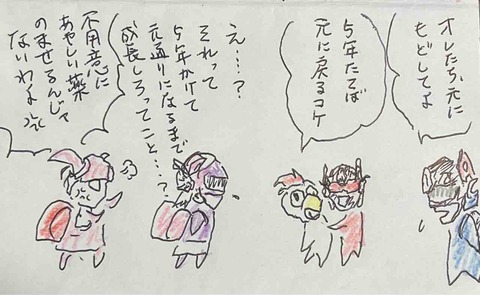 オレたち、元に
もどしてよ
5年たてば
元に戻るコケ
え…?
それって
5年かけて
元通りになるまで
成長しろってこと…?
不用意に
あやしい薬
のませるんじゃ
ないわよ